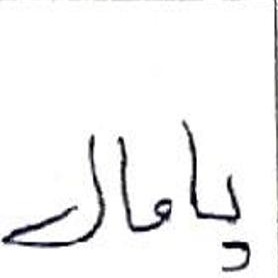 پامالی